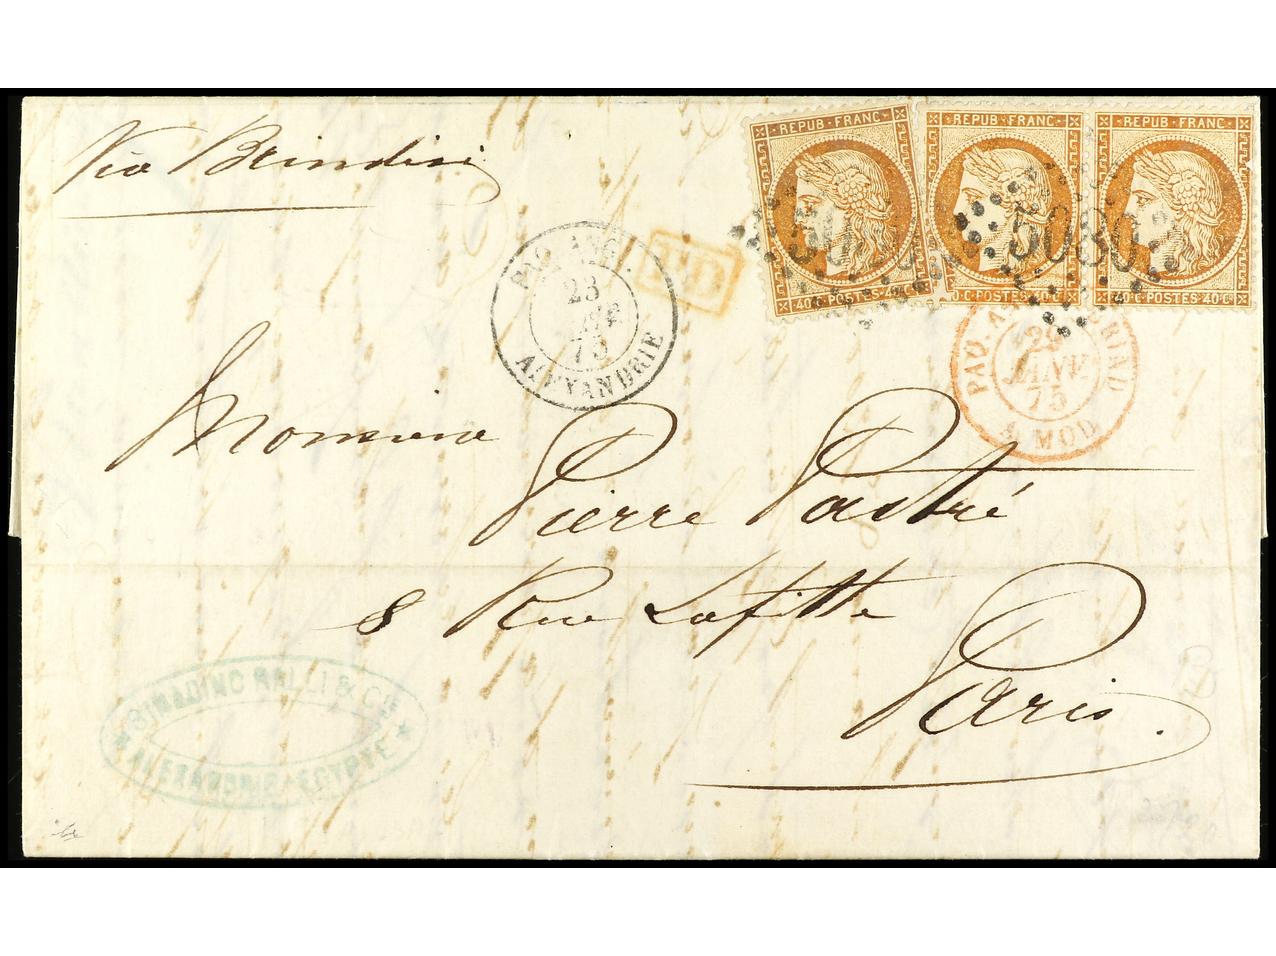 Via Brindisi
REPUB·FRANC·
40·C·POSTES·40·C·
REPUB·FRANC·
0·C·POSTES·40·C·
REPUB·FRANC·
40·C·POSTES·40·C·
5080
PAQ. ANG.
23
75
ALEXANDRIE
PD
PAQ.
JANV
75
A MOD
Monsieur
Pierre Pastré
8 Rue Lafitte
Paris.
SINADINO RALLI & CIE
ALEXANDRIE·EGYPTE